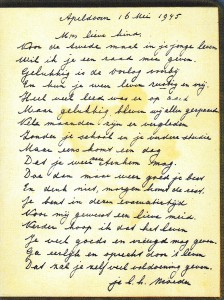 Apeldoorn 16 Mei 1945
Mijn lieve kind.
Voor de tweede maal in je jonge leven
Wil ik je een raad mee geven.
Gelukkig is de oorlog voorbij
En kun je weer leven rustig en vrij.
Heel veel leed was er op aard
Maar gelukkig bleven wij allen gespaard
Vele maanden zijn er vergleden
Zonder je school en je andere studie
Maar eens komt een dag
Dat je weer Arnhem mag.
Doe dan maar weer goed je best
En denk niet, morgen komt de rest.
Je bent in deze evacuatietijd
Voor mij geweest een lieve meid.
Verder hoop ik dat het leven
Je veel goeds en vreugd mag geven.
Ga eerlijk en oprecht door 't leven
Dat zal je zelf veel voldoening geven.
je l.h. Moeder